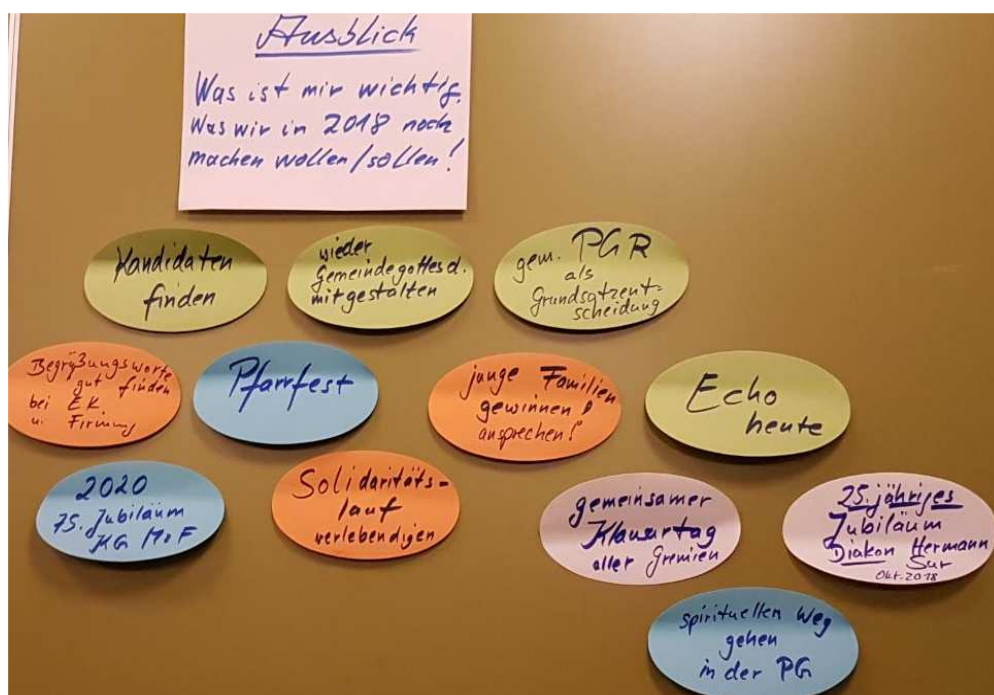 Ausblick
Was ist mir wichtig.
Was wir in 2018 noch
machen wollen/sollen!
Kandidaten
finden
wieder
Gemeindegottesd.
mitgestalten
gem. PGR
als
Grundsatzent-
scheidung
Begrüßungsworte
gut finden
bei EK.
u. Firmung
Pfarrfest
junge Familien
gewinnen!
ansprechen!
Echo
heute
2020
75. Jubiläum
KG
Solidaritäts-
lauf
verlebendigen
gemeinsamer
Klausurtag
aller Gremien
25. jähriges
Jubiläum
Diakon Hermann
Sur
Okt. 2018
spirituellen Weg
gehen
in der PG